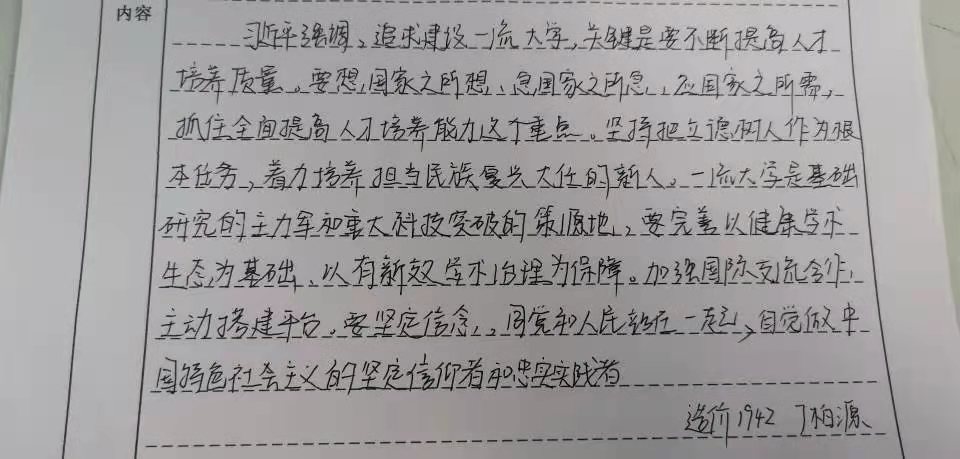 内容
习近平强调，追求建设一流大学，关键是要不断提高人才
培养质量。要想国家之所想、急国家之所急、应国家之所需，
抓住全面提高人才培养能力这个重点。坚持把立德树人作为根
本任务，着力培养担当民族复兴大任的新人。一流大学是基础
研究的主力军和重大科技突破的策源地，要完善以健康学术
生态为基础、以有新效学术治理为保障。加强国际交流合作，
主动搭建平台。要坚定信念，同党和人民站在一起，自觉做中
国特色社会主义的坚定信仰者和忠实实践者
造价1942 丁柏源